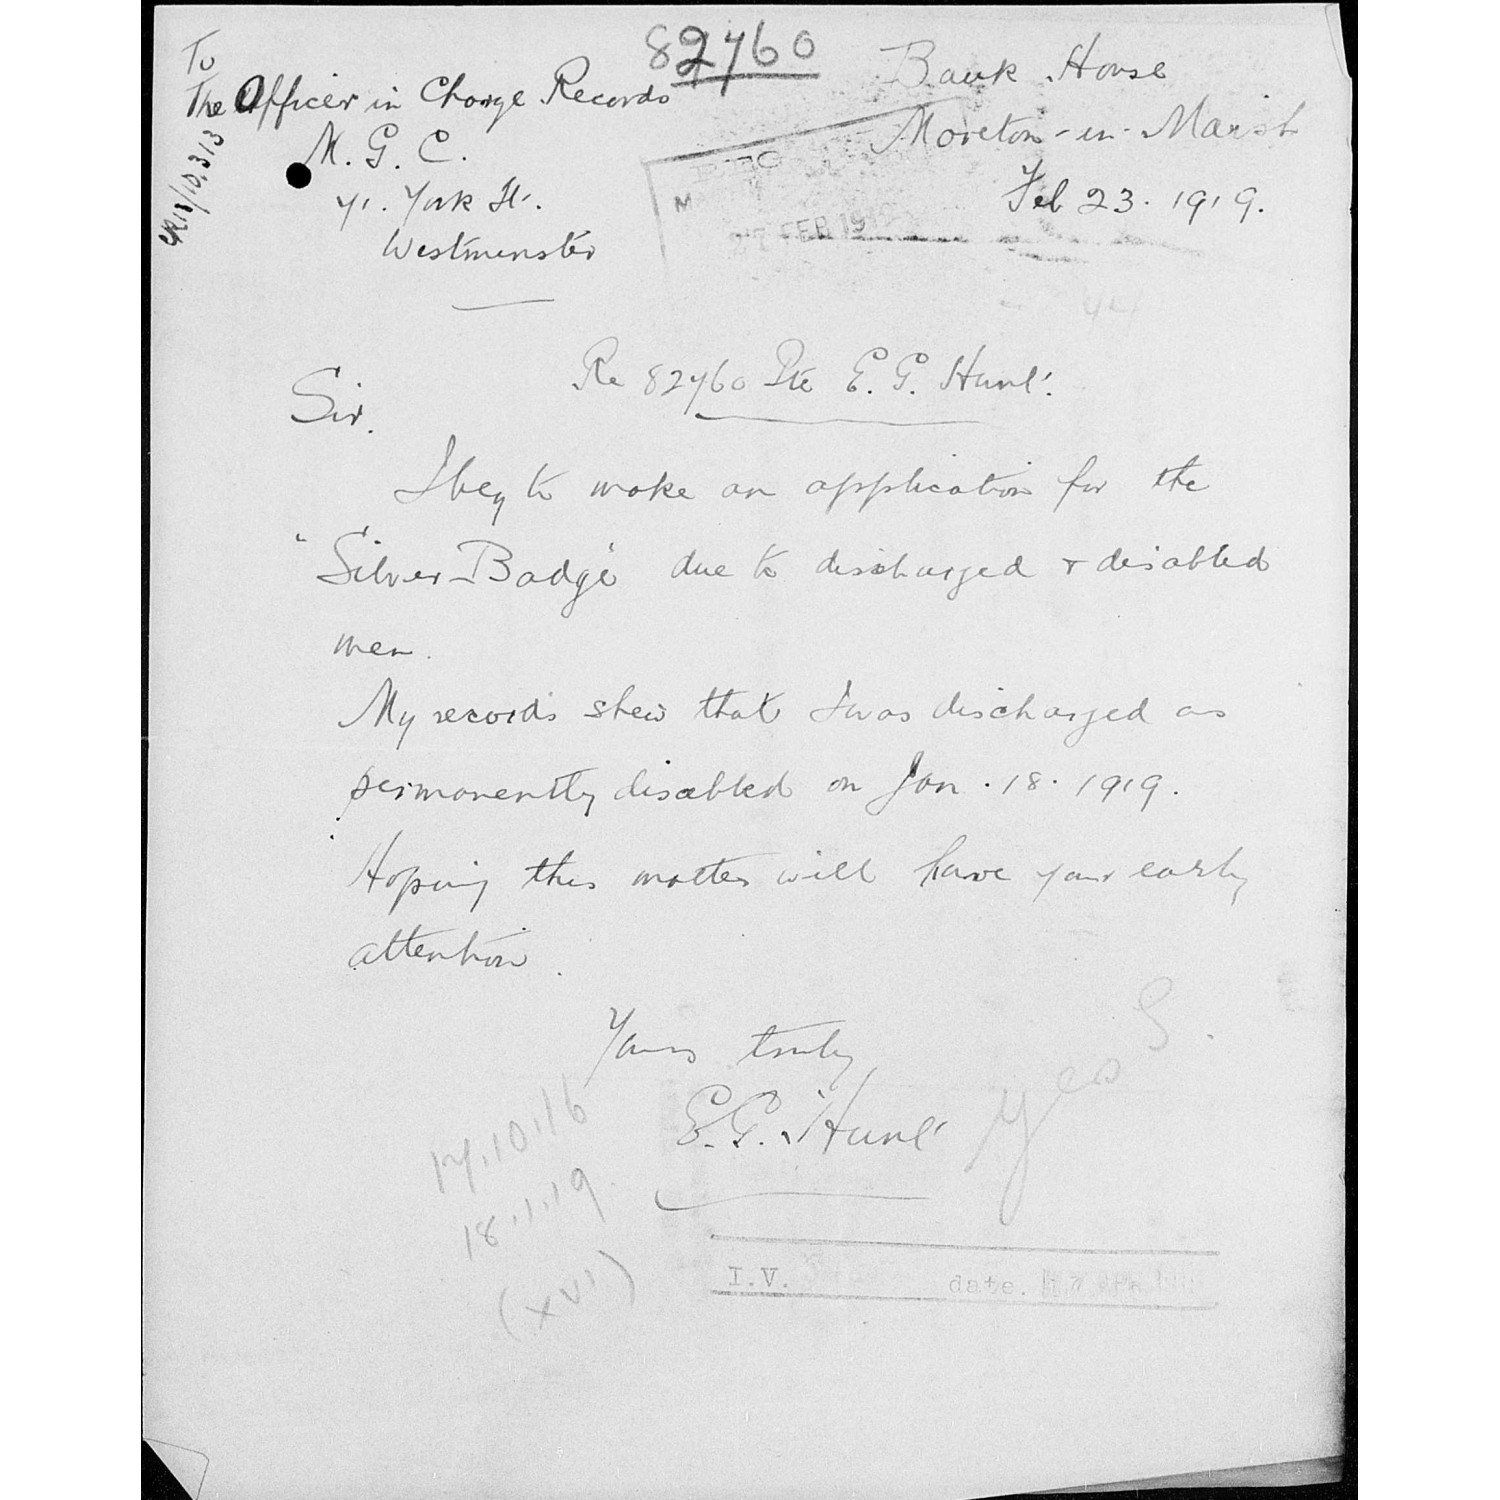 82760
To
The Officer in Charge Records
M. G. C.
71. York St.
Westminster
Bank House
Moreton-in-Marsh
Feb 23. 1919.
27 FEB 1919
Re 82760 Pte E. G. Hunt.
Sir.
I beg to make an application for the
"Silver Badge" due to discharged & disabled
men.
My records shew that I was discharged as
permanently disabled on Jan. 18. 1919.
Hoping this matter will have your early
attention.
Yours truly
E. G. Hunt
Yes
S.
17.10.16
18.1.19
(XVI)
I.V. date.